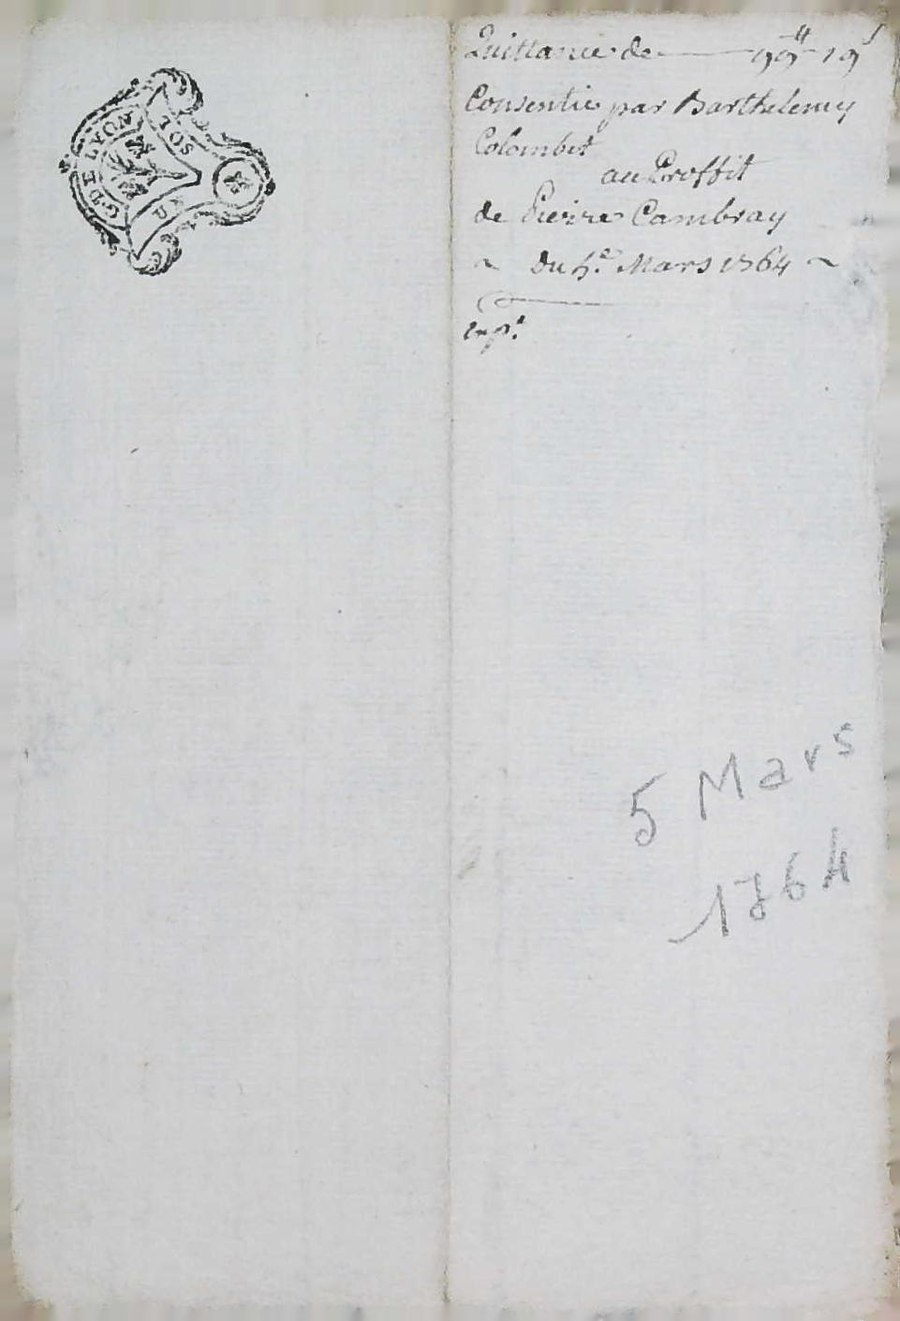 G. DE LYON
UN SOL
Quittance de — 99 ᵗᵗ 19 ˢ
Consentie par Barthelemy
Colombet
au Proffit
de Pierre Cambray
~ du 5e. Mars 1764 ~
Exp.
5 Mars
1764